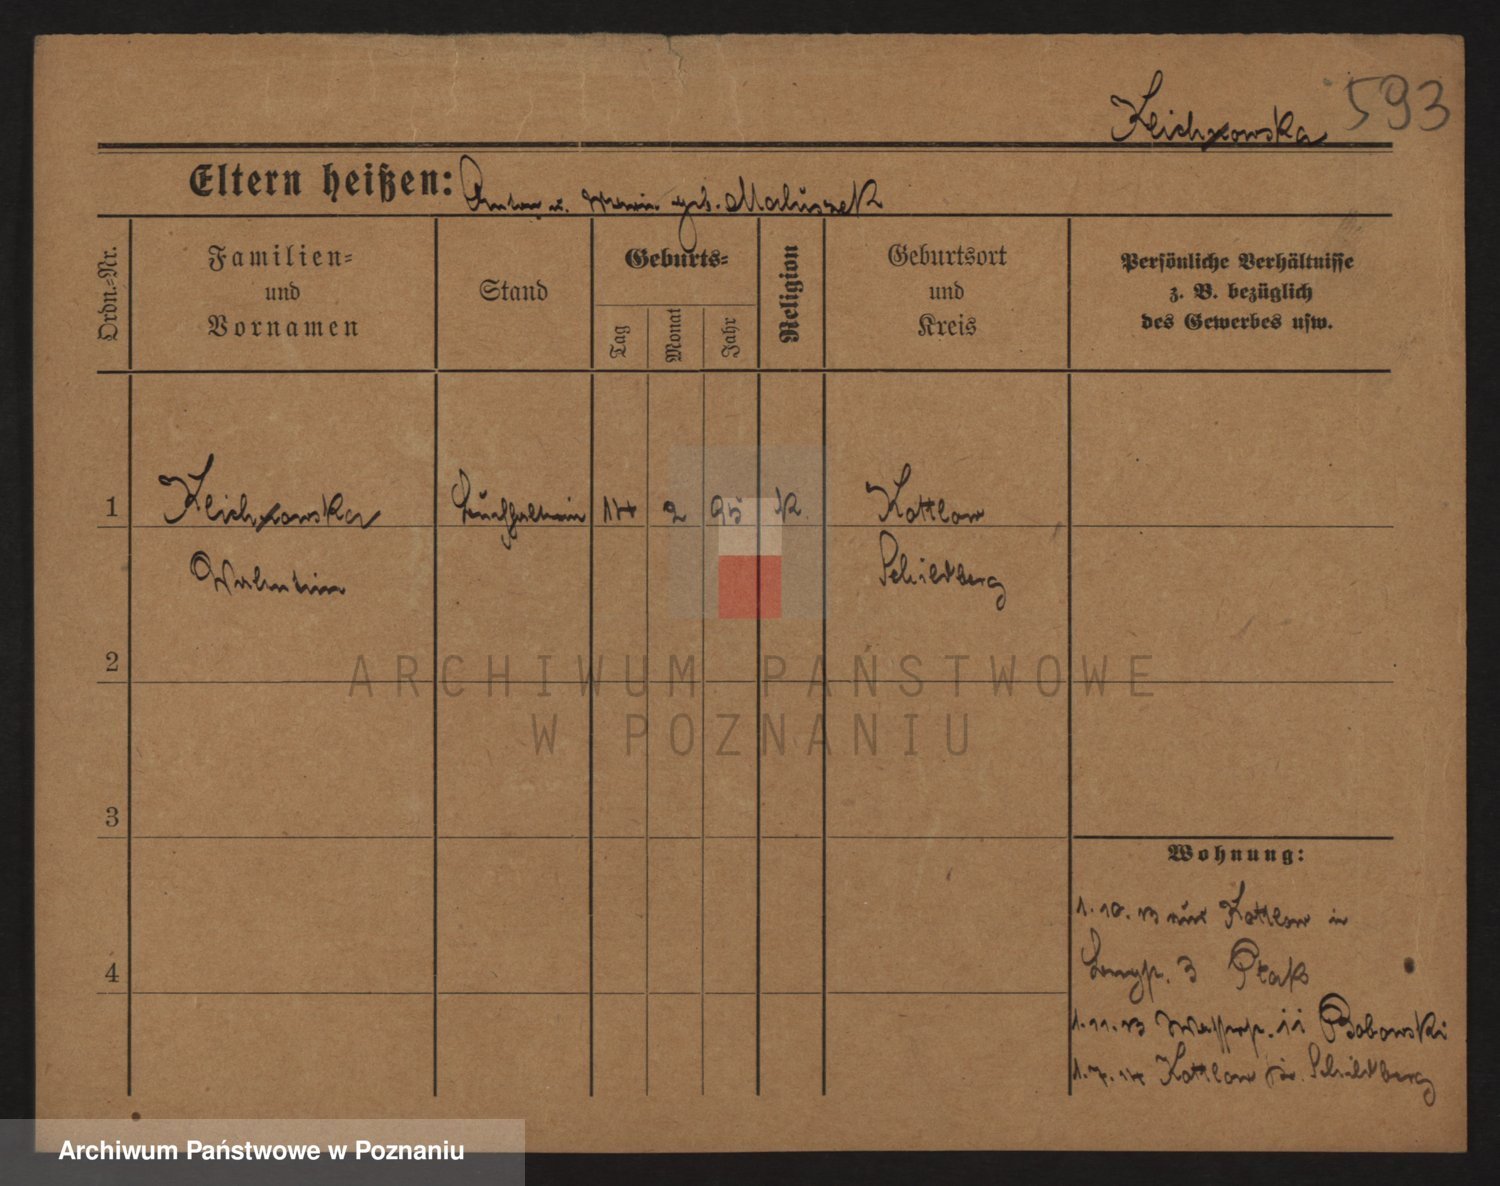 593
Klichzowska
Eltern heißen: Anton u. Maria geb. Maluszek
Ordn.-Nr.
Familien-
und
Vornamen
Stand
Geburts-
Tag
Monat
Jahr
Religion
Geburtsort
und
Kreis
Persönliche Verhältnisse
z. B. bezüglich
des Gewerbes usw.
1
Klichzowska
Buchhalterin
14
2
95
K.
Kottlow
Schildberg
2
3
4
Wohnung:
1.10.13 aus Kottlow in
3
1.11.13 11 Bobowski
1.7.14 Kottlow Kr. Schildberg
ARCHIWUM PAŃSTWOWE
W POZNANIU
Archiwum Państwowe w Poznaniu